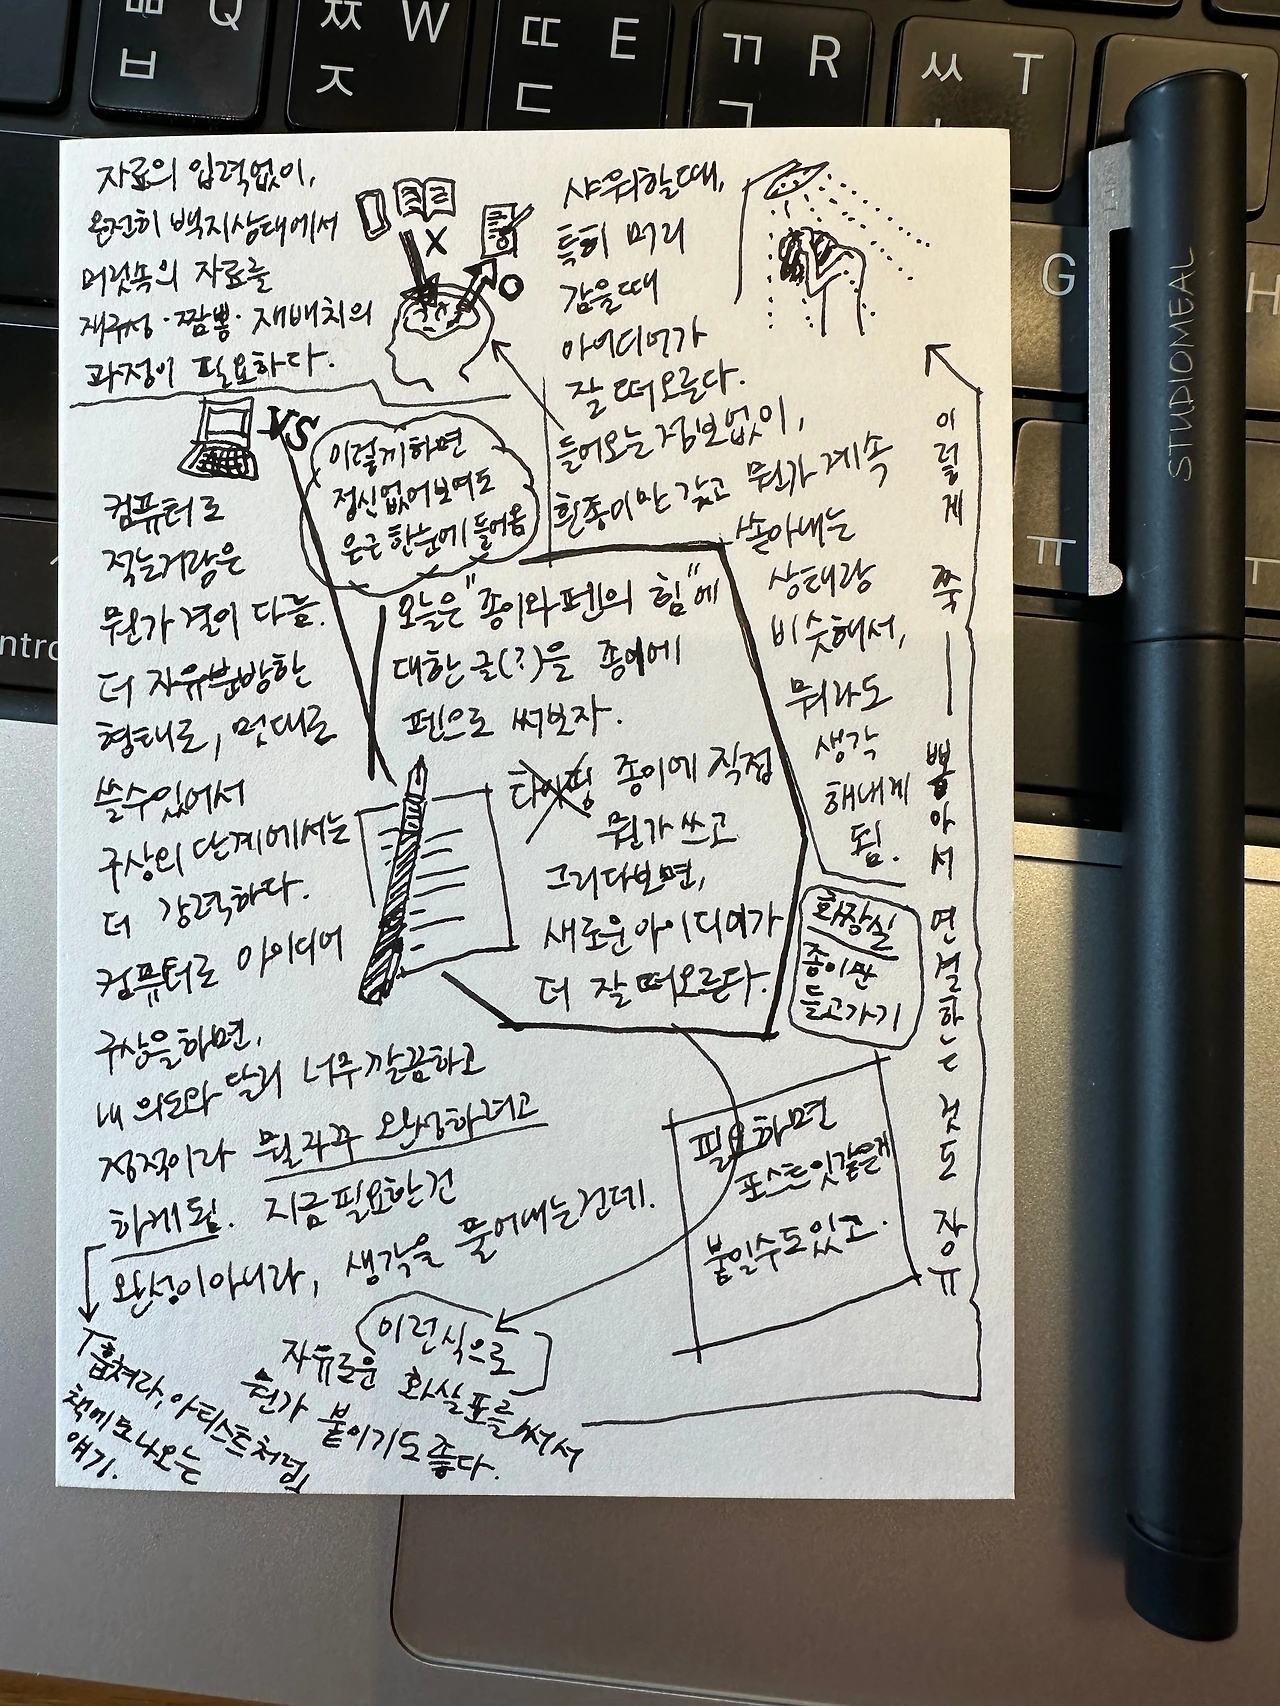 자료의 입력없이,
완전히 백지상태에서
머릿속의 자료를
재구성·짬뽕·재배치의
과정이 필요하다.
X
O
샤워할때,
특히 머리
감을때
아이디어가
잘 떠오른다.
들어오는 정보없이,
흰종이만 갖고 뭔가 계속
쏟아내는
상태랑
비슷해서,
뭐라도
생각
해내게
됨.
VS
이렇게하면
정신없어보여도
은근 한눈에 들어옴
컴퓨터로
적는거랑은
뭔가 결이 다름.
더 자유분방한
형태로, 멋대로
쓸수있어서
구상의 단계에서는
더 강력하다.
컴퓨터로 아이디어
구상을하면,
내 의도와 달리 너무깔끔하고
정적이라 뭘 자꾸 완성하려고
하게됨. 지금필요한건
완성이아니라, 생각을 풀어내는건데.
「훔쳐라, 아티스트처럼」
책에도나오는
얘기.
오늘은 "종이와펜의 힘"에
대한 글(?)을 종이에
펜으로 써보자.
타이핑 종이에 직접
뭔가 쓰고
그리다보면,
새로운아이디어가
더 잘 떠오른다.
화장실
종이만
들고가기
필요하면
포스트잇같은게
붙일수도있고.
이런식으로
자유로운 화살표를 써서
뭔가 붙이기도좋다.
이렇게 쭉 — 뽑아서 연결하는 것도 자유
ㅃ Q
ㅂ
ㅉ W
ㅈ
ㄸ E
ㄷ
ㄲ R
ㄱ
ㅆ T
G
H
ㅠ
STUDIOMEAL